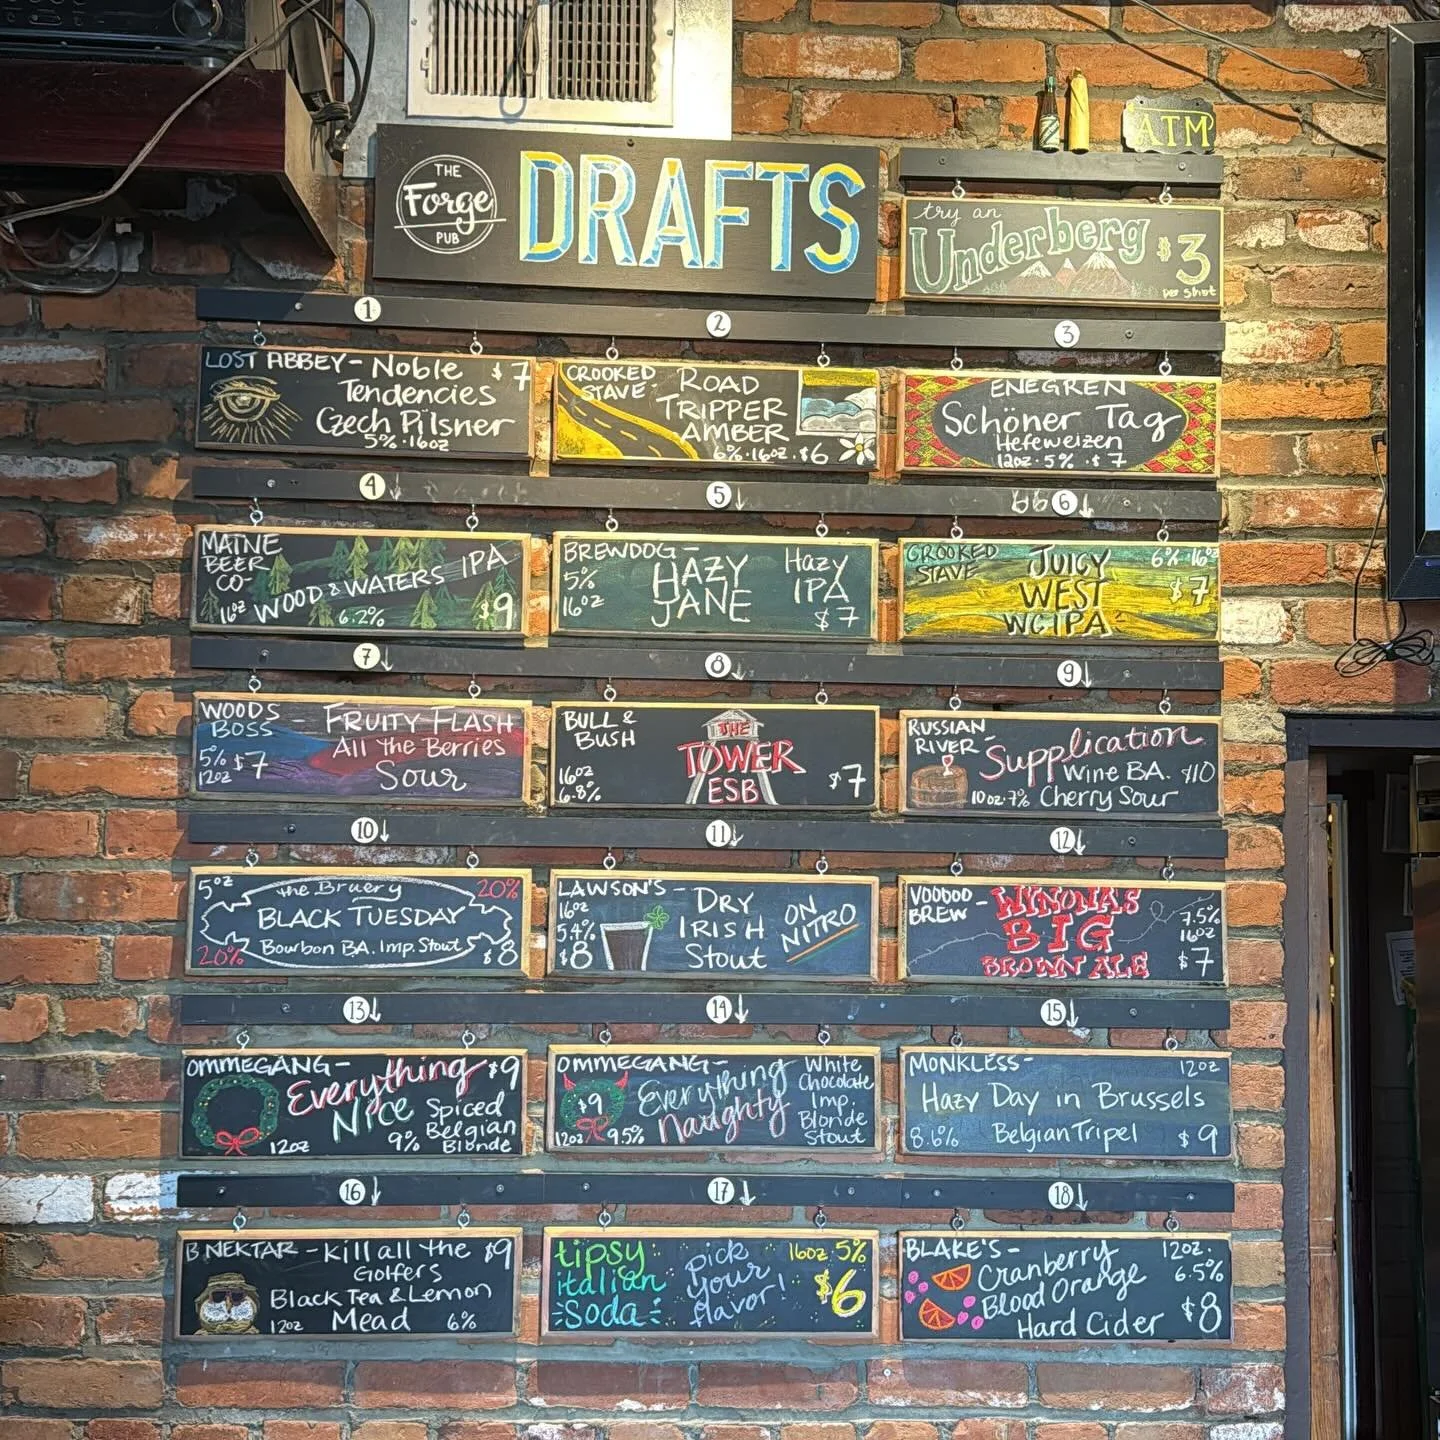 THE
Forge
PUB
DRAFTS
ATM
try an
Underberg
$3
per shot
1
2
3
LOST ABBEY - Noble $7
Tendencies
Czech Pilsner
5% · 16oz
CROOKED
STAVE -
ROAD
TRIPPER
AMBER
6% · 16oz · $6
ENEGREN
Schöner Tag
Hefeweizen
12oz · 5% · $7
4
5
6
MAINE
BEER
CO-
WOOD & WATERS IPA
16oz 6.2% $9
BREWDOG -
5%
16oz
HAZY
JANE
Hazy
IPA
$7
CROOKED
STAVE -
JUICY
WEST
WCIPA
6% · 16oz
$7
7
8
9
WOODS
BOSS -
FRUITY FLASH
All the Berries
Sour
5%
12oz $7
BULL &
BUSH
THE
TOWER
ESB
16oz
6.8%
$7
RUSSIAN
RIVER -
Supplication
Wine BA. $10
10oz · 7% Cherry Sour
10
11
12
5oz the Bruery 20%
BLACK TUESDAY
20% Bourbon BA. Imp. Stout $8
LAWSON'S -
16oz
5.4%
$8
DRY
IRISH
Stout
ON
NITRO
VOODOO
BREW -
WYNONAS
BIG
BROWN ALE
7.5%
16oz
$7
13
14
15
OMMEGANG -
Everything $9
Nice
Spiced
Belgian
Blonde
12oz 9%
OMMEGANG -
$9
12oz 9.5%
Everything
Naughty
White
Chocolate
Imp.
Blonde
Stout
MONKLESS - 12oz
Hazy Day in Brussels
8.6% Belgian Tripel $9
16
17
18
B. NEKTAR - Kill all the $9
Golfers
Black Tea & Lemon
12oz Mead 6%
tipsy
italian
Soda
pick
your
flavor!
16oz 5%
$6
BLAKE'S -
Cranberry
Blood Orange
Hard Cider
12oz.
6.5%
$8